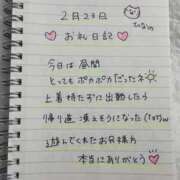 2月23日
ひなの
お礼日記
今日は昼間
とってもポカポカだったネ
上着持たずに出勤したら
帰り道凍えそうになった(TOT)w
遊んでくれたお客様方
本当にありがとう